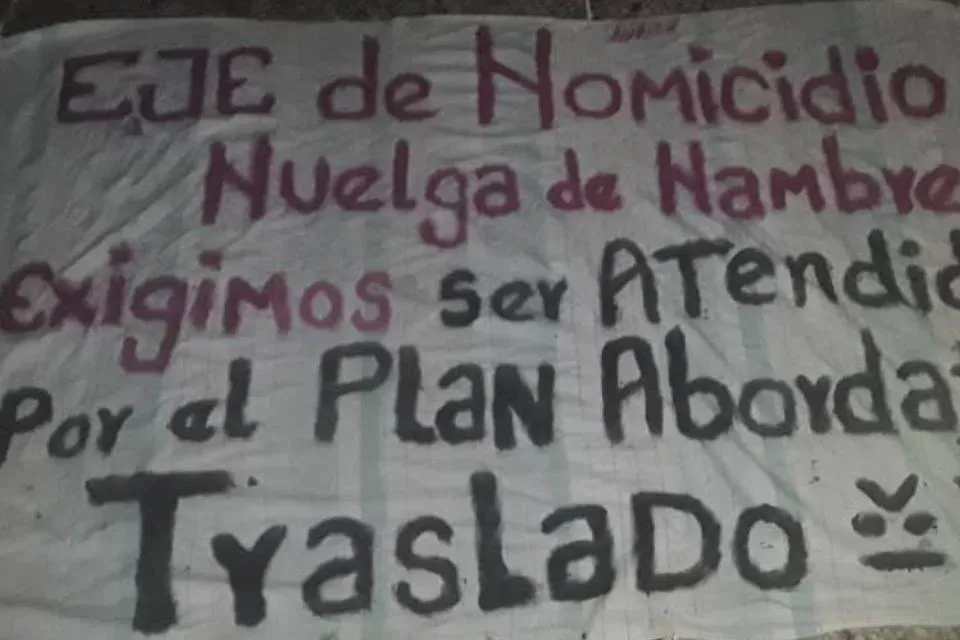 EJE de Homicidio
Huelga de Hambre
Exigimos ser ATendid
Por el PLAN Aborda
TrasLaDo